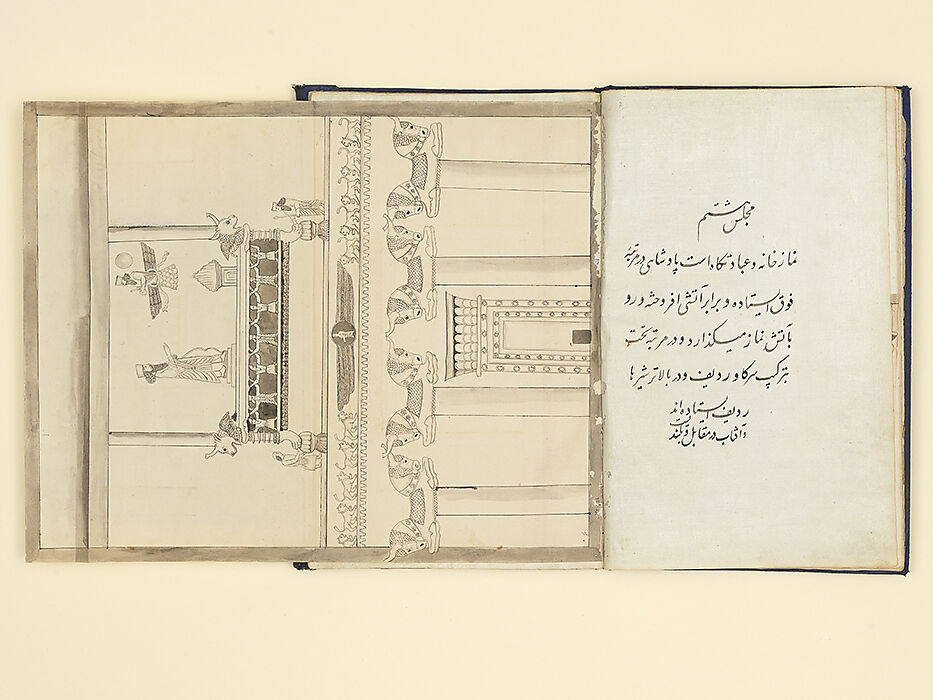 مجلس هشتم
نمازخانه و عبادتگاه است پادشاهی در مرتبهٔ
فوق ایستاده و برابر آتشی افروخته و رو
بآتش نماز میگذارد و در مرتبهٔ تخت
بترکیب سر گاو ردیف و در بالاتر شیرها
ردیف ایستاده‌اند
و آفتاب در مقابل او بلند